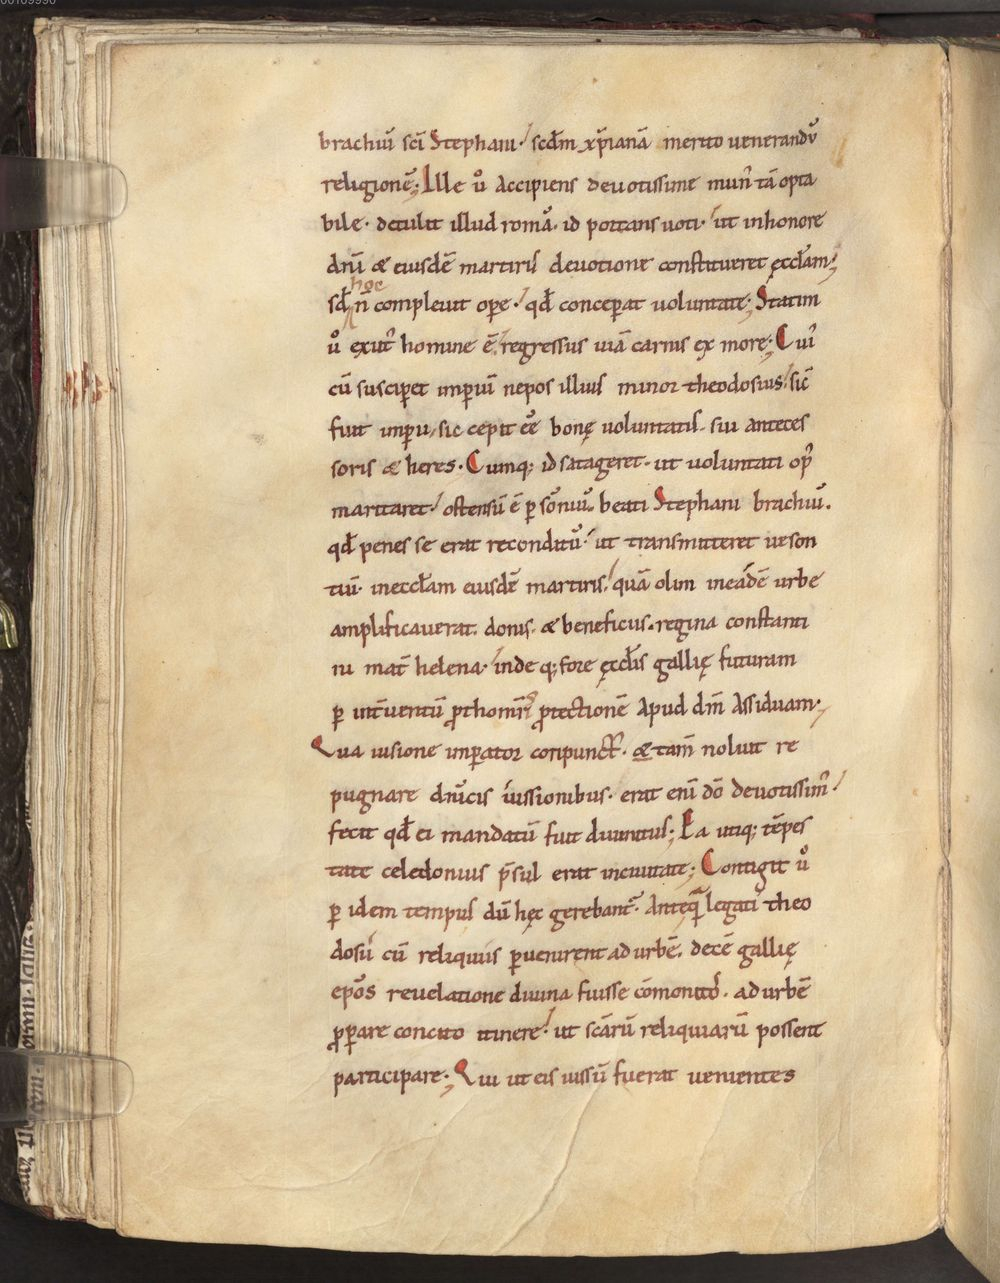 brachiū scī Stephani· scdm xp̄ianā merito venerandū
religionē; Ille ů accipiens devotissime mun̄ tā opta
bile· detulit illud romā· id portans voti· ut inhonore
dnī & eiusdē martiris devotione constitueret ęccłam;
sꝗ̄ hoc n̄ complevit ope· qđ conceperat voluntate; Statim
ů exut̄ homine ē· regressus viā carnis ex more; Cui᷒
cū susciperet imperiū nepos illius minor theodosius· sic̄
fuit imperii, sic cepit eē bonę voluntatis· sui anteces
soris & heres· Cumq; id satageret· ut voluntati op᷒
maritaret· ostensū ē ꝑ sōniū· beati Stephani brachiū·
qđ penes se erat reconditū· ut transmitteret veson
tiū· ineccłam eiusdē martiris· quā olim ineadē urbe
amplificaverat· donis· & beneficiis· regina constanti
ni mat̄ helena· inde q; fore ęccłis gallię futuram
ꝑ int̄ventū ꝓthomr̄is ꝓtectionē apud dm̄ assiduam·
Qua visione imperator conpunct᷒· & tam̄ noluit re
pugnare dn̄icis iussionibus· erat enī dō devotissim᷒·
fecit qđ ei mandatū fuit divinitus; Ea utiq; tēpes
tate celedonius p̄sul erat incivitate; Contigit ů
ꝑ idem tempus dū hęc gerebant᷒· anteq̄ legati theo
dosii cū reliquiis ꝑvenirent ad urbē· decē gallię
epōs revelatione divina fuisse cōmonitos· ad urbē
ꝓꝑare concito itinere· ut scārū reliquiarū possent
participare· Qui ut eis iussū fuerat venientes